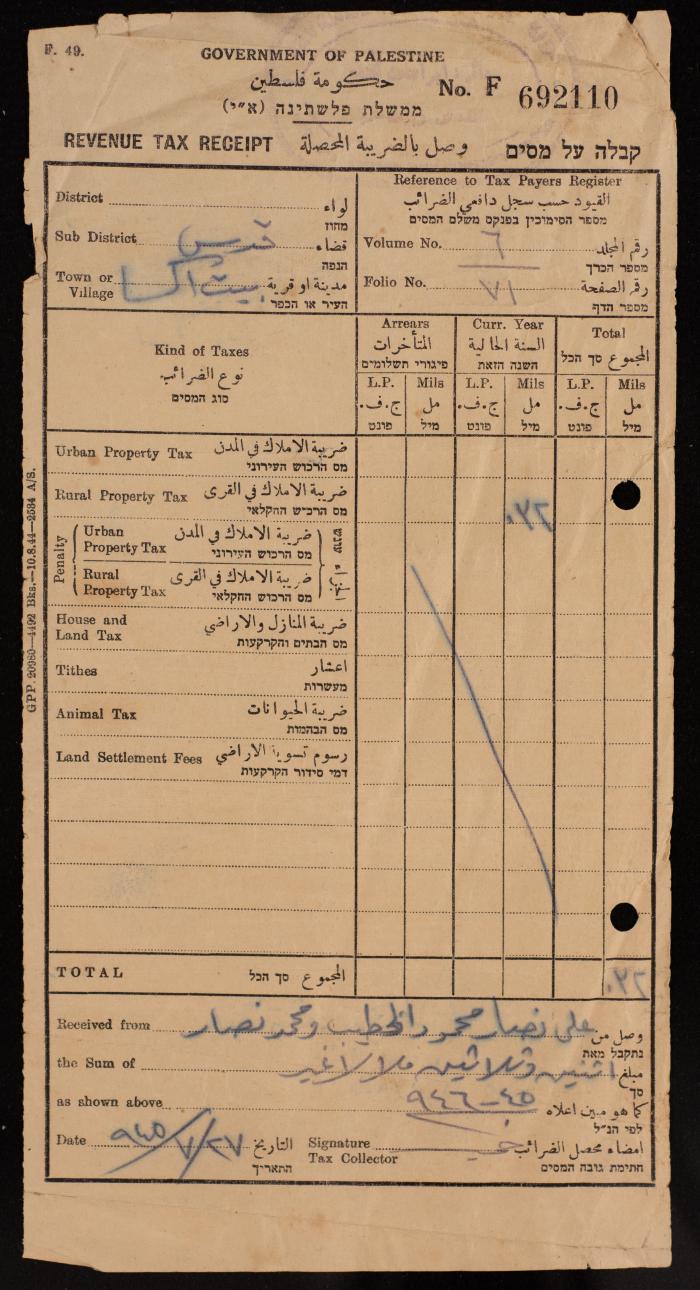 F. 49.
GOVERNMENT OF PALESTINE
حكومة فلسطين
ממשלת פלשתינה (א״י)
No. F 692110
REVENUE TAX RECEIPT وصل بالضريبة المحصلة קבלה על מסים
District لواء
מחוז
Sub District قدس قضاء
הנפה
Town or Village بيت اكسا مدينة او قرية
העיר או הכפר
Reference to Tax Payers Register
القيود حسب سجل دافعي الضرائب
מספר הסימוכין בפנקס משלם המסים
Volume No. ٦ رقم المجلد
מספר הכרך
Folio No. ٧١ رقم الصفحة
מספר הדף
Kind of Taxes
نوع الضرائب
סוג המסים
Arrears
المتأخرات
פיגורי תשלומים
Curr. Year
السنة الحالية
השנה הזאת
Total
المجموع סך הכל
L.P. Mils L.P. Mils L.P. Mils
ج.ف. مل ج.ف. مل ج.ف. مل
פונט מיל פונט מיל פונט מיל
Urban Property Tax ضريبة الاملاك في المدن
מס הרכוש העירוני
Rural Property Tax ضريبة الاملاك في القرى
מס הרכוש החקלאי
٠٣٢
Penalty
Urban Property Tax ضريبة الاملاك في المدن
מס הרכוש העירוני
Rural Property Tax ضريبة الاملاك في القرى
מס הרכוש החקלאי
עונש
House and Land Tax ضريبة المنازل والاراضي
מס הבתים והקרקעות
Tithes اعشار
מעשרות
Animal Tax ضريبة الحيوانات
מס הבהמות
Land Settlement Fees رسوم تسوية الاراضي
דמי סידור הקרקעות
TOTAL المجموع סך הכל
٠٣٢
Received from علي نصار محمود الخطيب ومحمد نصار وصل من
נתקבל מאת
the Sum of اثنين وثلاثين ملا لا غير مبلغ
סך
as shown above ٤٥-٩٤٦ كما هو مبين اعلاه
לפי הנ״ל
Date ٩٤٥/٧/٢٧ التاريخ
התאריך
Signature Tax Collector امضاء محصل الضرائب
חתימת גובה המסים
GPP. 20980—4492 Bks.—10.8.44—2534 A/S.